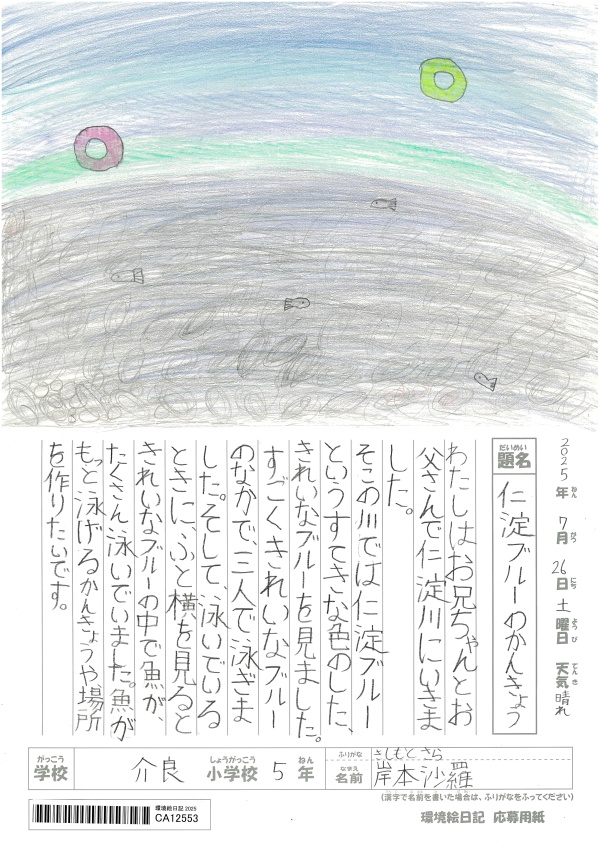 2025年 7月 26日 土曜日 天気 晴れ
ねん がつ にち ようび てんき
だいめい
題名 仁淀ブルーのかんきょう
わたしはお兄ちゃんとお
父さんで仁淀川にいきま
した。
そこの川では仁淀ブルー
というすてきな色のした、
きれいなブルーを見ました。
すごくきれいなブルー
のなかで、三人で泳ぎま
した。そして、泳いでいる
ときに、ふと横を見ると
きれいなブルーの中で魚が、
たくさん泳いでいました。魚が
もっと泳げるかんきょうや場所
を作りたいです。
がっこう しょうがっこう ねん
学校 介良 小学校 5年
ふりがな きしもと さら
なまえ
名前 岸本沙羅
(漢字で名前を書いた場合は、ふりがなをふってください)
環境絵日記 2025
CA12553
環境絵日記 応募用紙